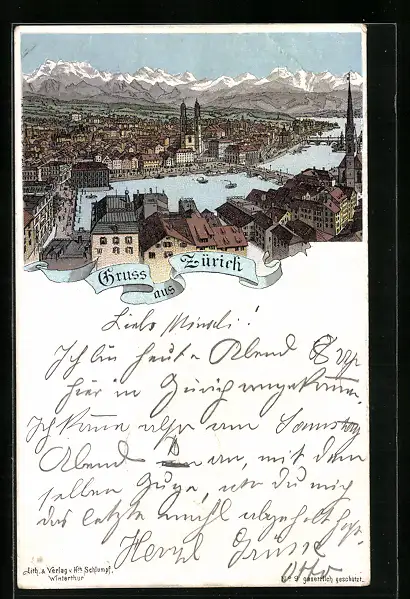 Gruss
aus
Zürich
Liebs Mineli!
Ich bin heute Abend 8
hier in Zürich angekommen.
Ich komme also am Samstag
Abend an, mit dem
selben Zuge, wo du mich
das letzte mahl abgeholt hast.
Herzl Grüsse
Otto
Lith. & Verlag v. Hch. Schlumpf,
Winterthur
No 9 gesetzlich geschützt.